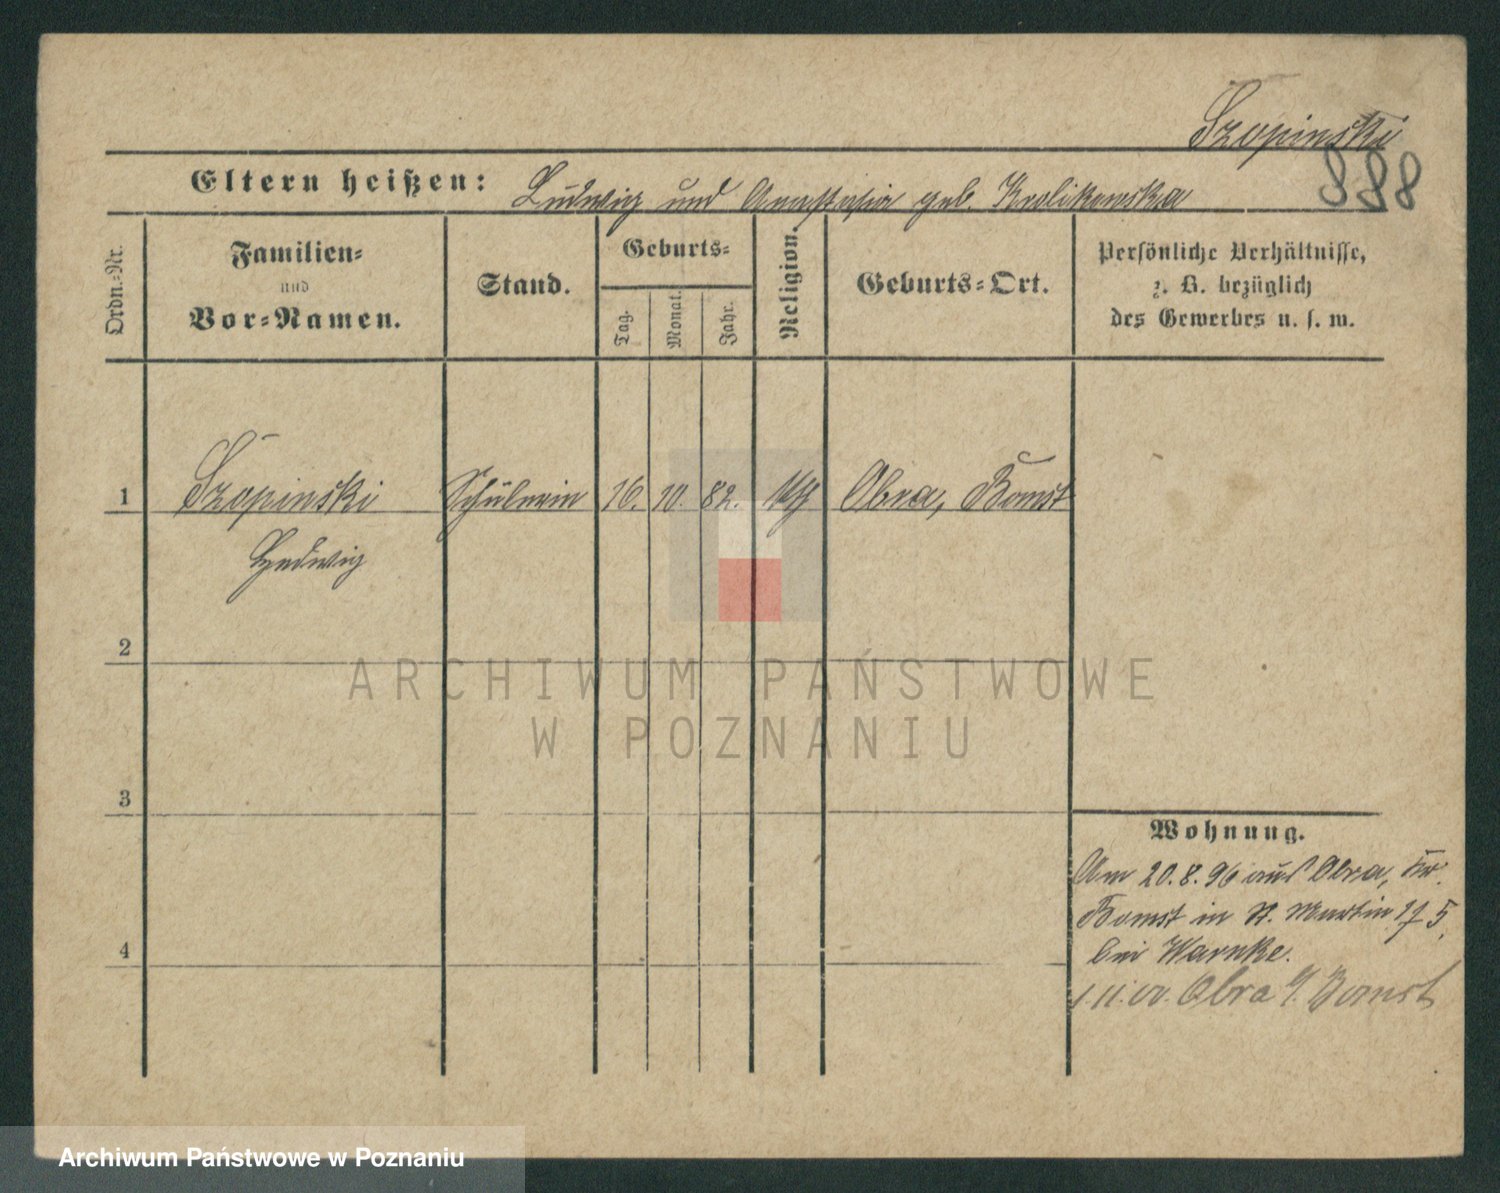 Szopinski
888
Eltern heißen: Ludwig und Anastasia geb. Krolikowska
Ordn.=Nr.
Familien=
und
Vor=Namen.
Stand.
Geburts=
Tag.
Monat.
Jahr.
Religion.
Geburts=Ort.
Persönliche Verhältnisse,
z. B. bezüglich
des Gewerbes u. s. w.
1 Szopinski Schülerin 16. 10. 82. kth Obra, Bomst
Hedwig
2
3
4
Wohnung.
Am 20.8.96 aus Obra, Kr.
Bomst in St. Martin 17 5,
bei Warnke.
Obra Bomst
ARCHIWUM PAŃSTWOWE
W POZNANIU
Archiwum Państwowe w Poznaniu